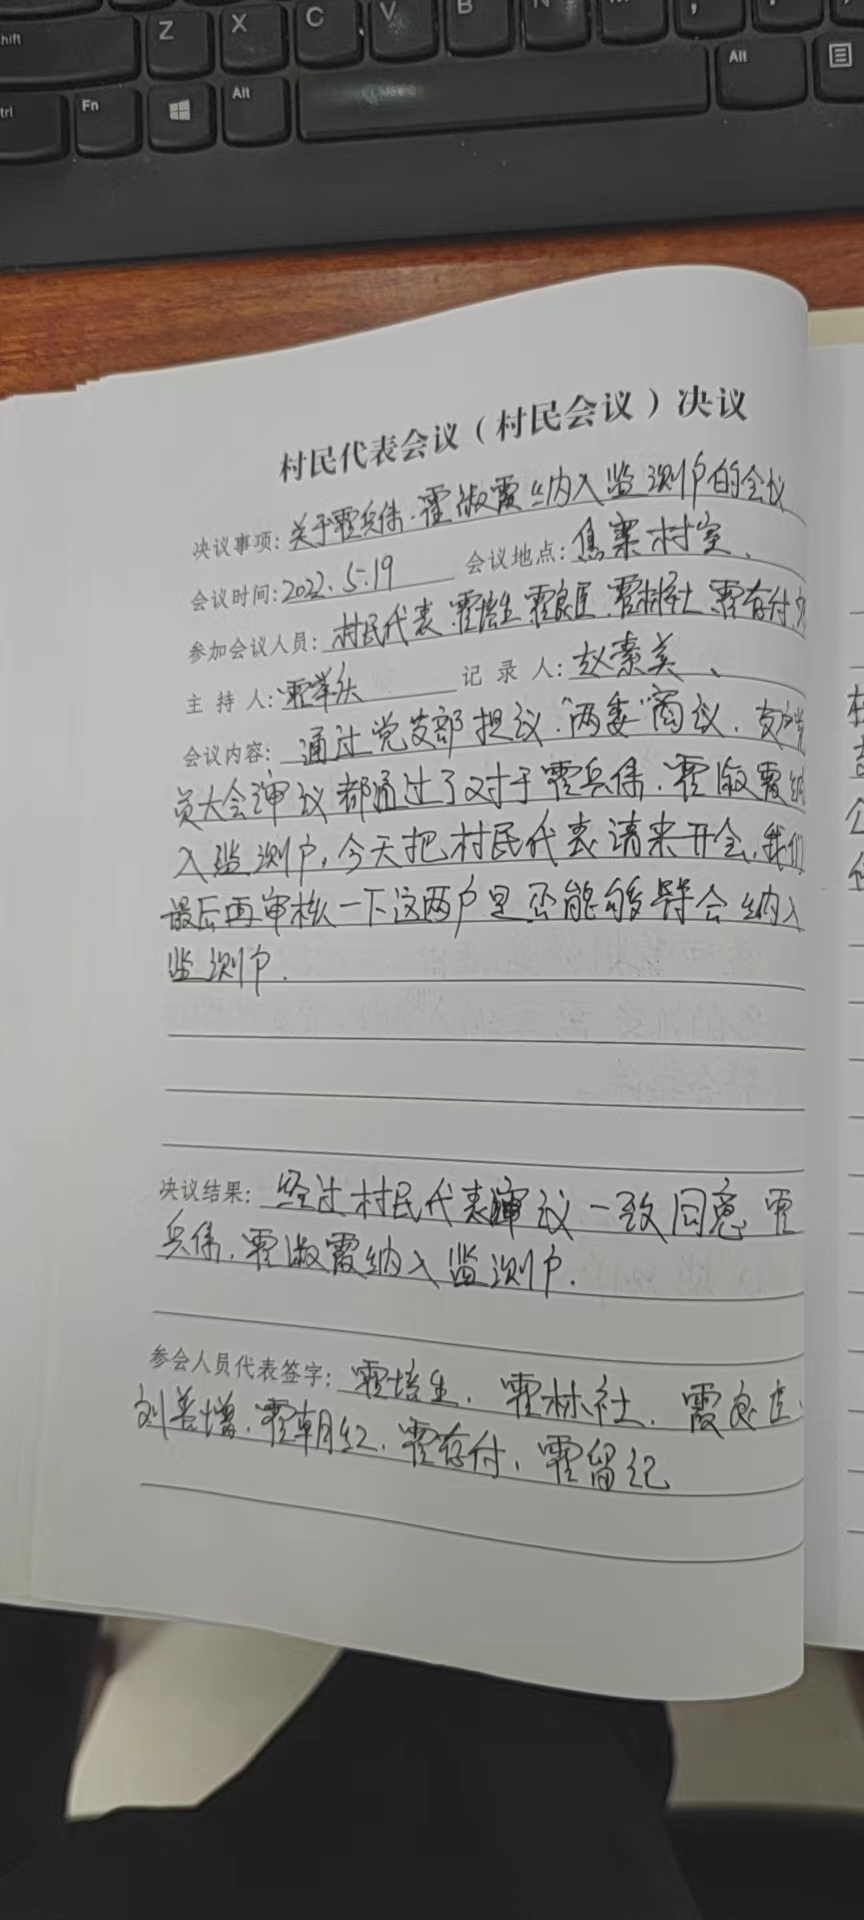 Z X C V B N M
Shift
Alt
Ctrl Fn Alt
村民代表会议（村民会议）决议
决议事项: 关于霍兵伟.霍淑霞纳入监测户的会议
会议时间: 2022.5.19 会议地点: 焦寨村室.
参加会议人员: 村民代表.霍培生 霍良臣.霍林社 霍存付.刘
主持人: 霍举 记录人: 赵素美、
会议内容: 通过党支部提议.“两委”商议.支部党
员大会审议都通过了对于霍兵伟.霍淑霞纳
入监测户,今天把村民代表请来开会,我们
最后再审核一下这两户是否能够符合纳入
监测户.
决议结果: 经过村民代表审议一致同意 霍
兵伟.霍淑霞纳入监测户.
参会人员代表签字: 霍培生.霍林社.霍良臣.
刘善增.霍朝红.霍存付.霍留纪